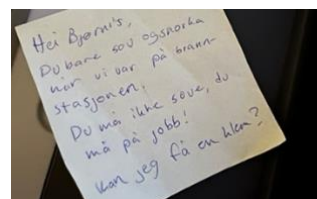 Hei Bjørnis,
Du bare sov og snorka
når vi var på brann-
stasjonen.
Du må ikke sove, du
må på jobb!
Kan jeg få en klem?